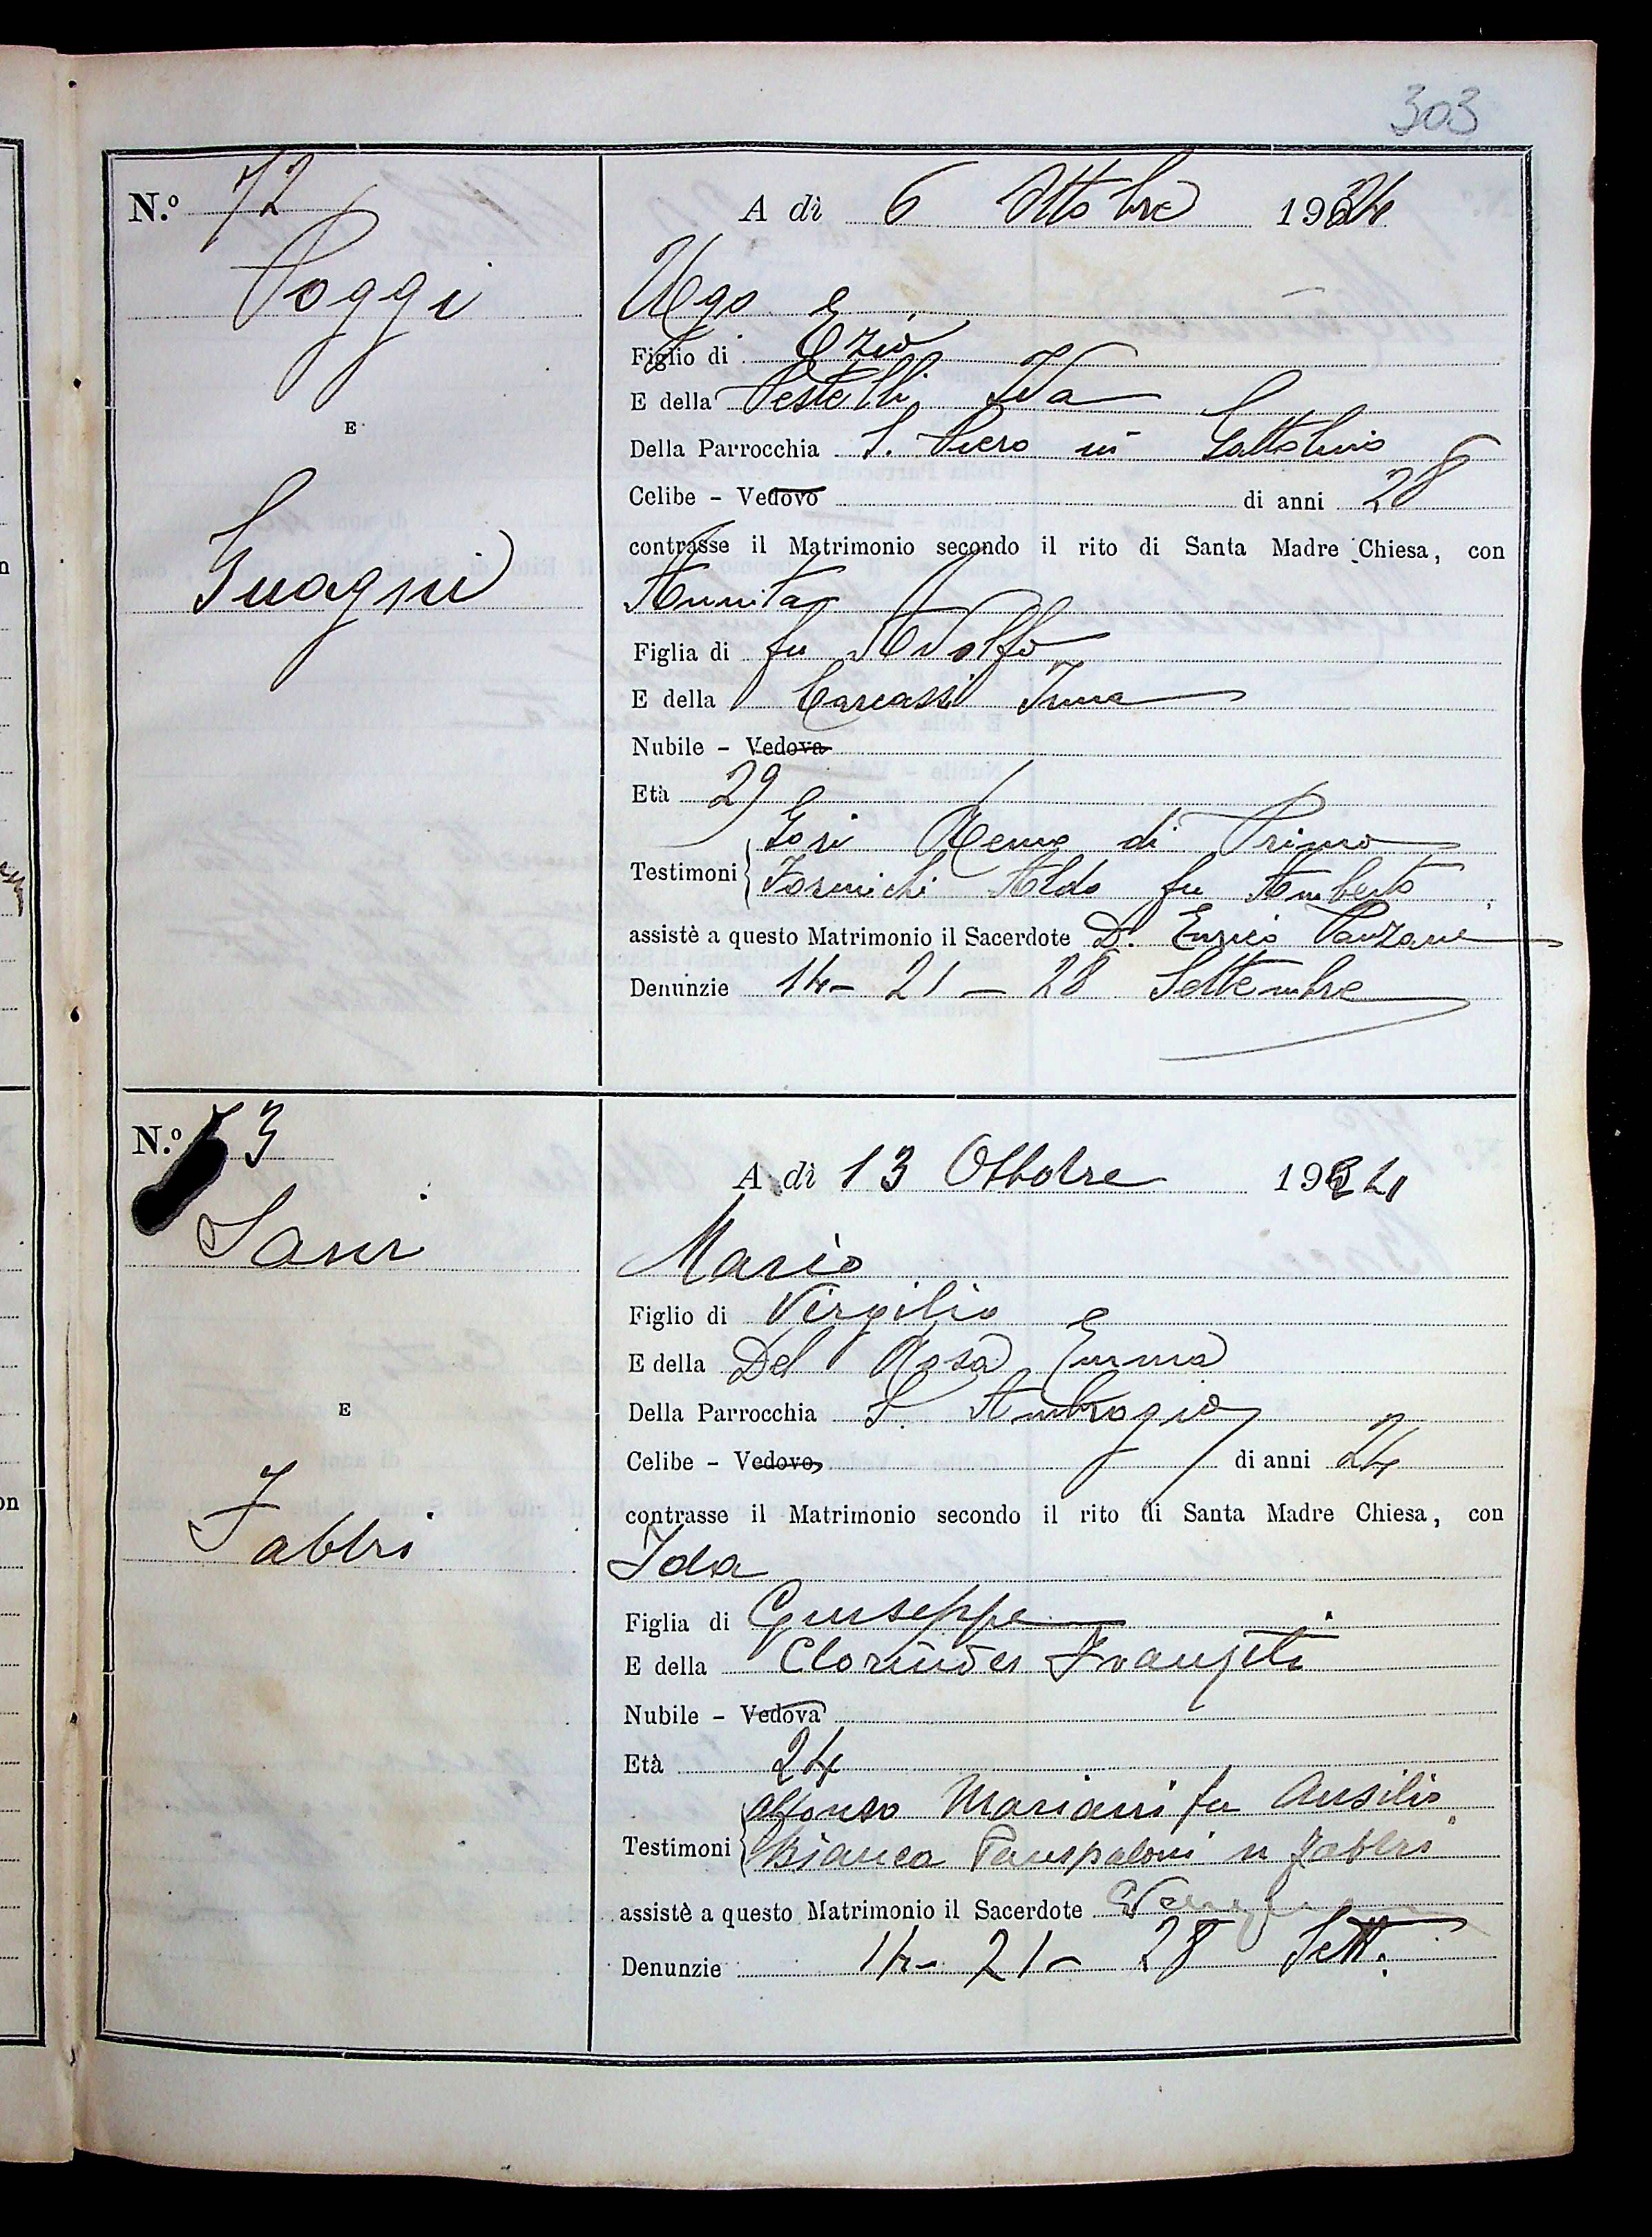 303
N.º 72
A dì 6 Ottobre 1924
Poggi
Ugo
Figlio di Ezio
E della Pestelli Ida
E
Della Parrocchia S. Piero in Gattolino
Celibe - Vedovo di anni 28
contrasse il Matrimonio secondo il rito di Santa Madre Chiesa, con
Guagni
Annita
Figlia di fu Adolfo
E della Carcassi Irma
Nubile - Vedova
Età 29
Gori Remo di Primo
Testimoni Formichi Aldo fu Umberto
assistè a questo Matrimonio il Sacerdote D. Enrico Panzani
Denunzie 14 - 21 - 28 Settembre
N.º 73
A dì 13 Ottobre 1924
Sani
Mario
Figlio di Virgilio
E della Del Rosa Emma
E
Della Parrocchia S. Ambrogio
Celibe - Vedovo, di anni 24
contrasse il Matrimonio secondo il rito di Santa Madre Chiesa, con
Fabbri
Ida
Figlia di Giuseppe
E della Clorinda
Nubile - Vedova
Età 24
Alfonso Mariani fu Ausilio
Testimoni Bianca Fabbri
assistè a questo Matrimonio il Sacerdote
Denunzie 14 - 21 - 28 Sett.